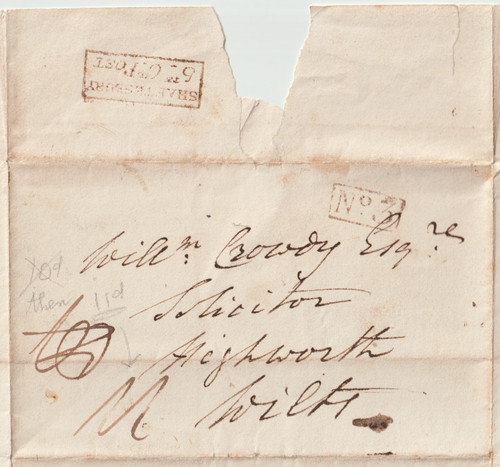 SHAFTESBURY
5TH Cs POST
No. 3
Willm. Crowdy Esqre
Solicitor
Highworth
Wilts
10d
then 11d